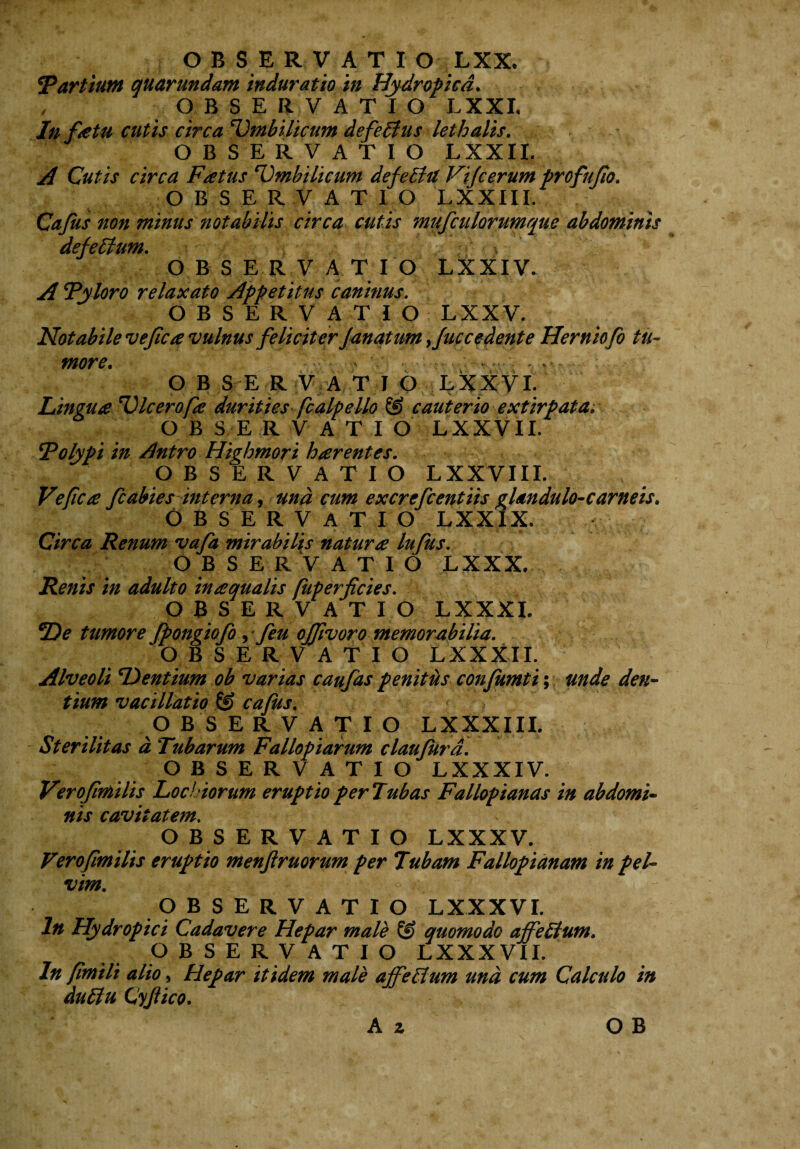 OBSERVATIO LXX.
Partium quarundam induratio in Hydropicâ.
OBSERVATIO LXXI.
In fætu cutis circa Vmbilicum defectus lethalis.
OBSERVATIO LXXII.
A Cutis circa Fætus Vmbilicum defectu Viſcerum profuſio.
OBSERVATIO LXXIII.
Caſus non minus notabilis circa cutis muſculorumque abdominis
defectum.
OBSERVATIO LXXIV.
A Pyloro relaxato Appetitus caninus.
OBSERVATIO LXXV.
Notabile veſicæ vulnus feliciter ſanatum, ſuccedente Hernioſo tu-
more.
OBSERVATIO LXXVI.
Linguæ Vlceroſæ durities ſcalpello & cauterio extirpata.
OBSERVATIO LXXVII.
Polypi in Antro Highmori hærentes.
OBSERVATIO LXXVIII.
Veſicæ ſcabies interna, unà cum excreſcentiis glandulo-carneis.
OBSERVATIO LXXIX.
Circa Renum vaſa mirabilis naturæ luſus.
OBSERVATIO LXXX.
Renis in adulto inæqualis ſuperficies.
OBSERVATIO LXXXI.
De tumore ſpongioſo, ſeu oſſivoro memorabilia.
OBSERVATIO LXXXII.
Alveoli Dentium ob varias cauſas penitùs conſumti; unde den-
tium vacillatio & caſus.
OBSERVATIO LXXXIII.
Sterilitas à Tubarum Fallopiarum clauſurâ.
OBSERVATIO LXXXIV.
Veroſimilis Lochiorum eruptio per Tubas Fallopianas in abdomi-
nis cavitatem.
OBSERVATIO LXXXV.
Veroſimilis eruptio menſtruorum per Tubam Fallopianam in pel-
vim.
OBSERVATIO LXXXVI.
In Hydropici Cadavere Hepar malè & quomodo affectum.
OBSERVATIO LXXXVII.
In ſimili alio, Hepar itidem malè affectum unà cum Calculo in
ductu Cyſtico.
A 2 OB